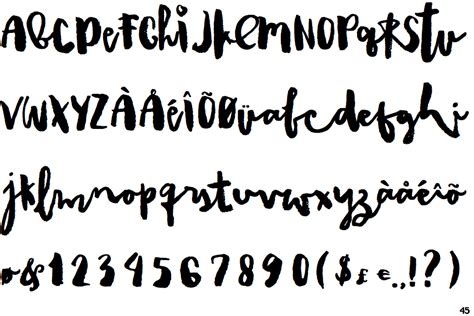 ABCDeFGhiJklMNOPqRSTu
VWXYZÀÅéîÕØüabcdefghi
jklmnopqrstuvwxyzàåéîõ
ø&1234567890($£€.,!?)
45